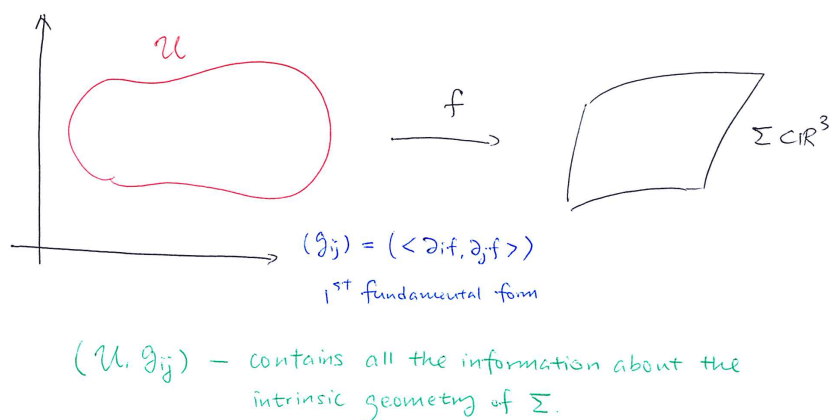 U
f
Σ ⊂ ℝ³
(gᵢⱼ) = (<∂ᵢf, ∂ⱼf>)
1ˢᵗ fundamental form
(U, gᵢⱼ) – contains all the information about the
intrinsic geometry of Σ.